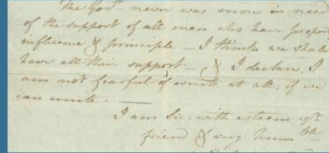 The Govt. never was more in need
of the support of all men who have property
influence & principle — I think we shall
have all their support — & I declare, I
am not fearful of events at all, if we
can unite. —
I am Sir, with esteem yr.
friend & very humble